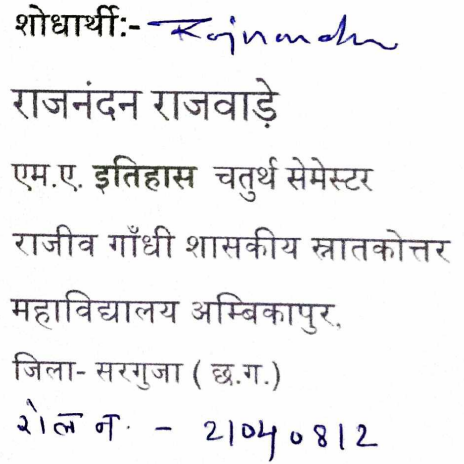 शोधार्थी:- Rajnandan
राजनंदन राजवाड़े
एम.ए. इतिहास चतुर्थ सेमेस्टर
राजीव गाँधी शासकीय स्नातकोत्तर
महाविद्यालय अम्बिकापुर,
जिला- सरगुजा ( छ.ग.)
रोल न. - 21040812